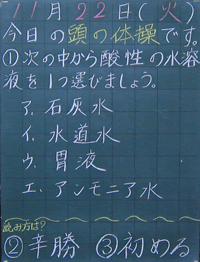 11月22日(火)
今日の頭の体操です。
①次の中から酸性の水溶
液を1つ選びましょう。
ア.石灰水
イ.水道水
ウ.胃液
エ.アンモニア水
読み方は?
②辛勝 ③初める